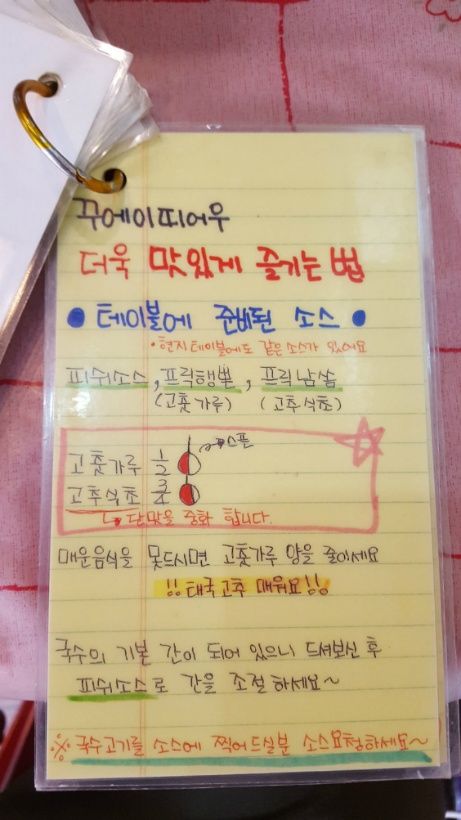 꾸에이띠어우
더욱 맛있게 즐기는 법
● 테이블에 준비된 소스 ●
• 현지 테이블에도 같은 소스가 있어요
피쉬소스, 프릭행뿐, 프릭남쏨
(고춧가루) (고추식초)
스푼
고춧가루 1/2
고추식초 3/4
↳ 단맛을 중화 합니다.
매운음식을 못드시면 고춧가루 양을 줄이세요
!! 태국고추 매워요 !!
국수의 기본 간이 되어 있으니 드셔보신 후
피쉬소스로 간을 조절하세요~
※ 국수고기를 소스에 찍어드실분 소스요청하세요~